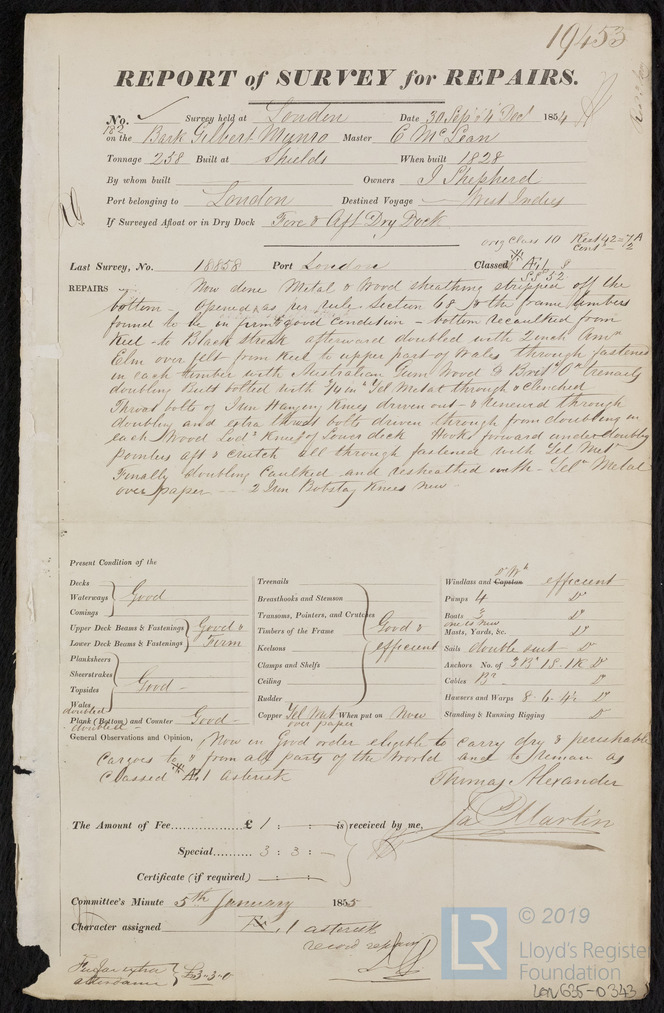 19453
REPORT of SURVEY for REPAIRS.
No. Survey held at London Date 30 Sep 4 Dec 1854
182
on the Bark Gilbert Munro Master C McLean
Tonnage 258 Built at Shields When built 1828
By whom built Owners J Shepherd
Port belonging to London Destined Voyage West Indies
If Surveyed Afloat or in Dry Dock Fore & Aft Dry Dock
orig Class 10 Rest 42 = 7A
Cont 2
Last Survey, No. 18858 Port London Classed A.1. 8
SS 52
REPAIRS Now done Metal & Wood sheathing stripped off the
bottom - opened as per rule Section 68 & the frame timbers
found to be in firm & good Condition - bottom recaulked from
Keel to Black Streak afterward doubled with 2 inch Amn
Elm over felt from Keel to upper part of Wales through fastened
in each timber with Australian Gum Wood & Oa trenails
doubling Butt bolted with 3/4 in Yel Metal through & clenched
Throat bolts of Iron Hanging Knees driven out & renewed through
doubling and extra thrust bolts driven through from doubling in
each Wood Lodg Knees of Lower deck Hooks forward under doubling
Pointers aft & crutch all through fastened with Yel Metl
Finally doubling Caulked and resheathed with Yell Metal
over paper -- 2 Iron Bobstay Knees new -
Present Condition of the
Decks
Waterways Good
Comings
Upper Deck Beams & Fastenings Good &
Lower Deck Beams & Fastenings Firm
Planksheers
Sheerstrakes
Topsides Good -
Wales doubled
Plank (Bottom) and Counter Good -
doubled -
Treenails
Breasthooks and Stemson
Transoms, Pointers, and Crutches
Timbers of the Frame Good &
Keelsons efficient
Clamps and Shelfs
Ceiling
Rudder
Copper Yel Met When put on Now
over paper
Windlass and Capstan Do Wh efficient
Pumps 4 Do
Boats 3 Do
one is new
Masts, Yards, &c. Do
Sails double suit Do
Anchors No. of 3 Br 1 S. 1 K Do
Cables Br Do
Hawsers and Warps 8. 6. 4½ Do
Standing & Running Rigging Do
General Observations and Opinion, Now in Good order eligible to carry dry & perishable
Cargoes to & from all parts of the World and to remain as
Classed Æ 1 asterisk
Thomas Alexander
Jas Martin
The Amount of Fee £ 1 : - : - is received by me,
Special 3 : 3 : -
Certificate (if required) - : -
Committee's Minute 5th January 1855
Character assigned Æ.1 asterisk
record repairs
Fee for extra
attendance £3-3-0
LR
© 2019
Lloyd's Register
Foundation
LON635-0343